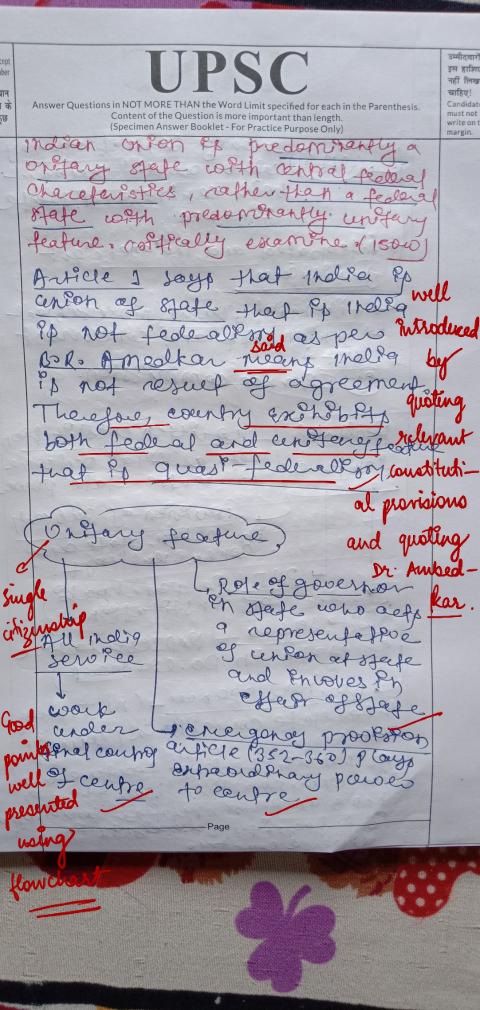 UPSC
Answer Questions in NOT MORE THAN the Word Limit specified for each in the Parenthesis.
Content of the Question is more important than length.
(Specimen Answer Booklet - For Practice Purpose Only)
उम्मीदवारों
इस हाशिए
नहीं लिखना
चाहिए!
Candidate
must not
write on t
margin.
Indian Union is predominantly a
unitary state with central federal
charcteristics, rather than a federal
state with predominantly unitary
feature. critically examine. (150w)
Article 1 says that India is
union of state that is India
is not federalism as per
B.R. Amedkar means India
said
is not result of agreement.
Therefore, country exihibits
both federal and unitary feature
that is quasi-federalism
well
introduced
by
quoting
relevant
constituti-
al provisions
and quoting
Dr. Ambed-
kar.
Unitary feature
single
citizenship
All India
service
work
under
final control
of centre
Role of governor
in state who acts
a representative
of union at state
and invoves in
affair of state
emergency provision
article (352-360) plays
extraordinary power
to centre
Good
points
well
presented
using
flowchart
Page